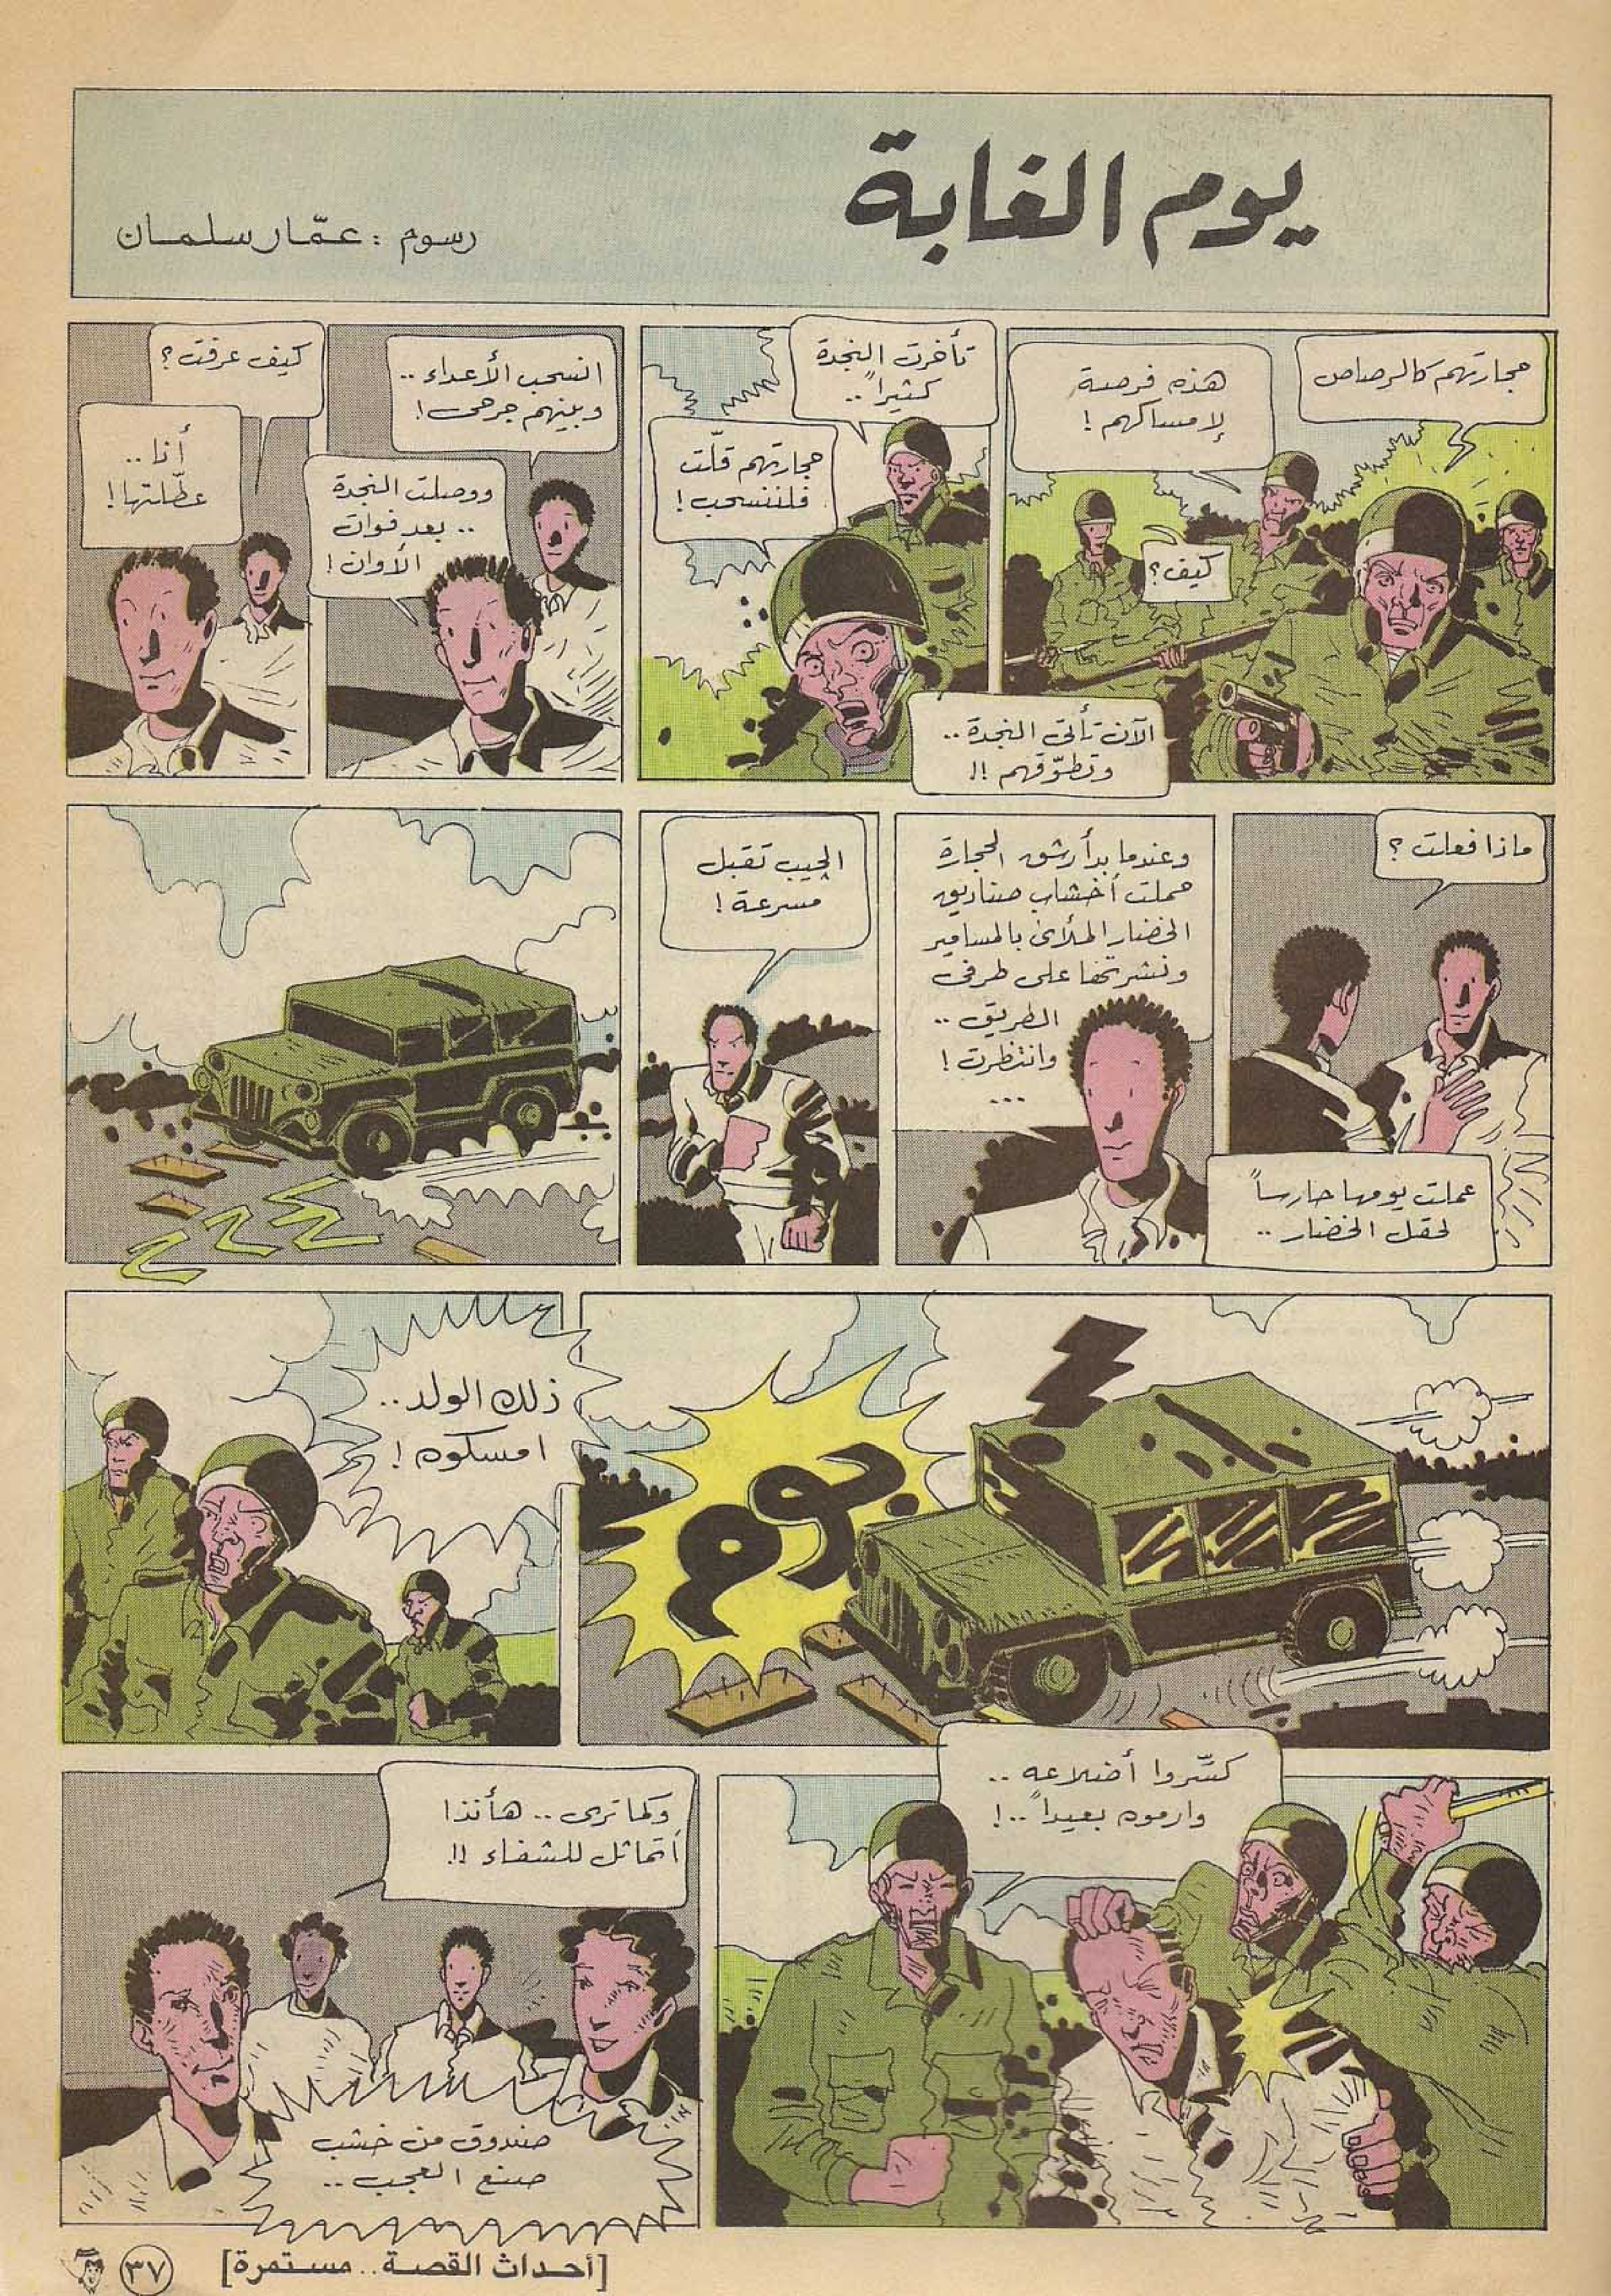 يوم الغابة
رسوم : عمّار سلمان
حجارتهم كالرصاص
هذه فرصة
لإمساكهم !
كيف؟
الآن تأتي النجدة ..
وتطوّقهم !!
تأخرت النجدة
كثيراً ..
حجارتهم قلّت
فلننسحب !
انسحب الأعداء ..
وبينهم جرحى !
ووصلت النجدة
.. بعد فوات
الأوان !
كيف عرفت ؟
أنا ..
عطّلتها !
ماذا فعلت ؟
عملت يومها حارساً
لحقل الخضار ..
وعندما بدأ رشق الحجارة
حملت أخشاب صناديق
الخضار الملأى بالمسامير
ونشرتها على طرفي
الطريق ..
وانتظرت !
...
الجيب تقبل
مسرعة !
بوم
ذلك الولد ..
امسكوه !
كسّروا أضلاعه ..
وارموه بعيداً .. !
وكما ترى .. هأنذا
أتماثل للشفاء !!
صندوق من خشب
صنع العجب ..
[أحداث القصة .. مستمرة]
٣٧